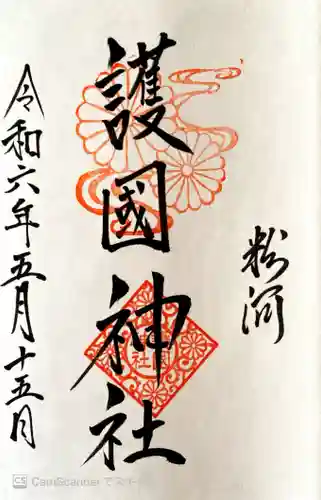 粉河
護國神社
令和六年五月十五日
CS CamScanner でスキ